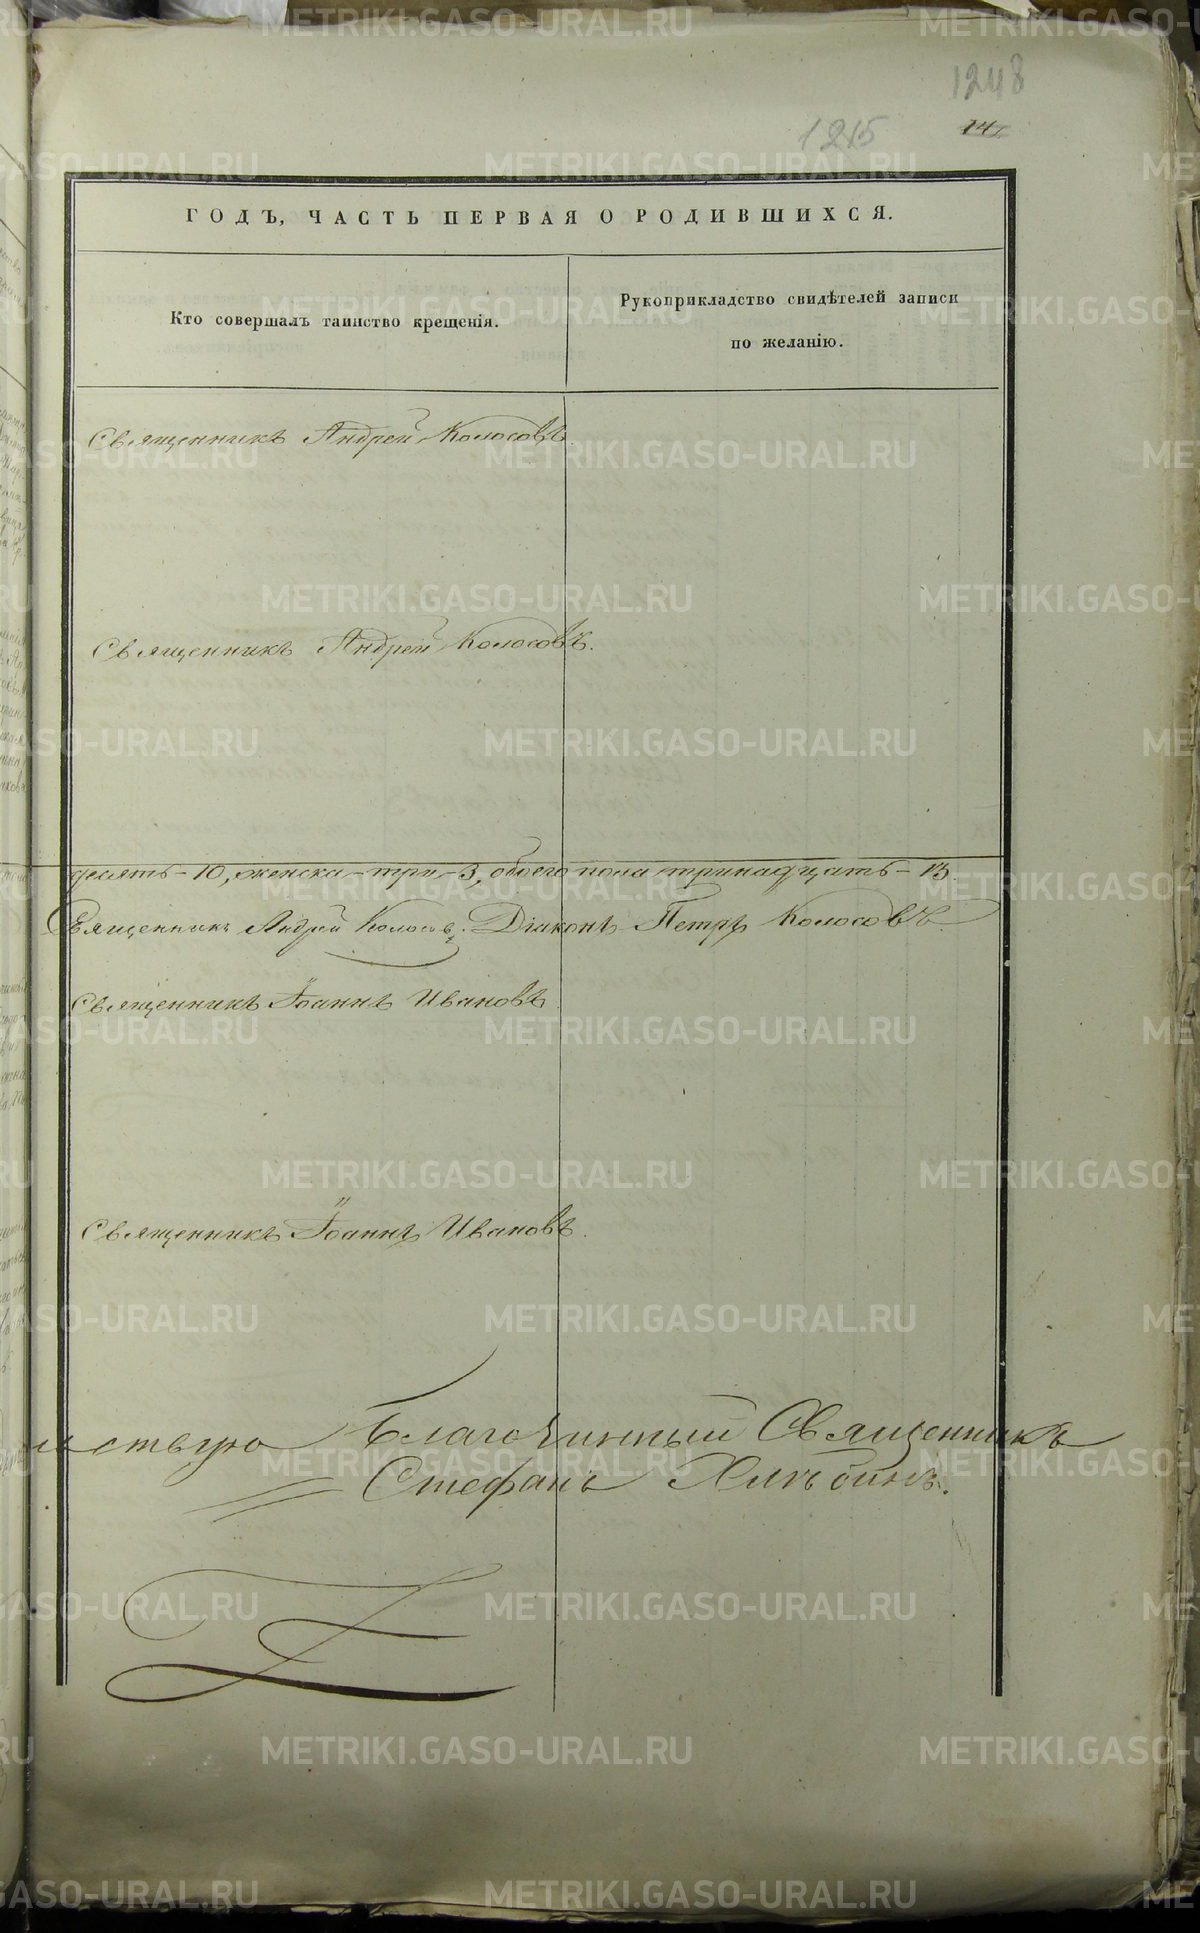 1248
1215
141
ГОДЪ, ЧАСТЬ ПЕРВАЯ О РОДИВШИХСЯ.
Кто совершалъ таинство крещенія.
Рукоприкладство свидѣтелей записи
по желанію.
Священникъ Андрей Колосовъ.
Священникъ Андрей Колосовъ.
десять – 10, женска – три – 3, обоего пола тринадцать – 13.
Священникъ Андрей Колосовъ. Діаконъ Петръ Колосовъ.
Священникъ Іоаннъ Ивановъ.
Священникъ Іоаннъ Ивановъ.
Благочинный Священникъ
Стефанъ Хлѣбинъ.
METRIKI.GASO-URAL.RU